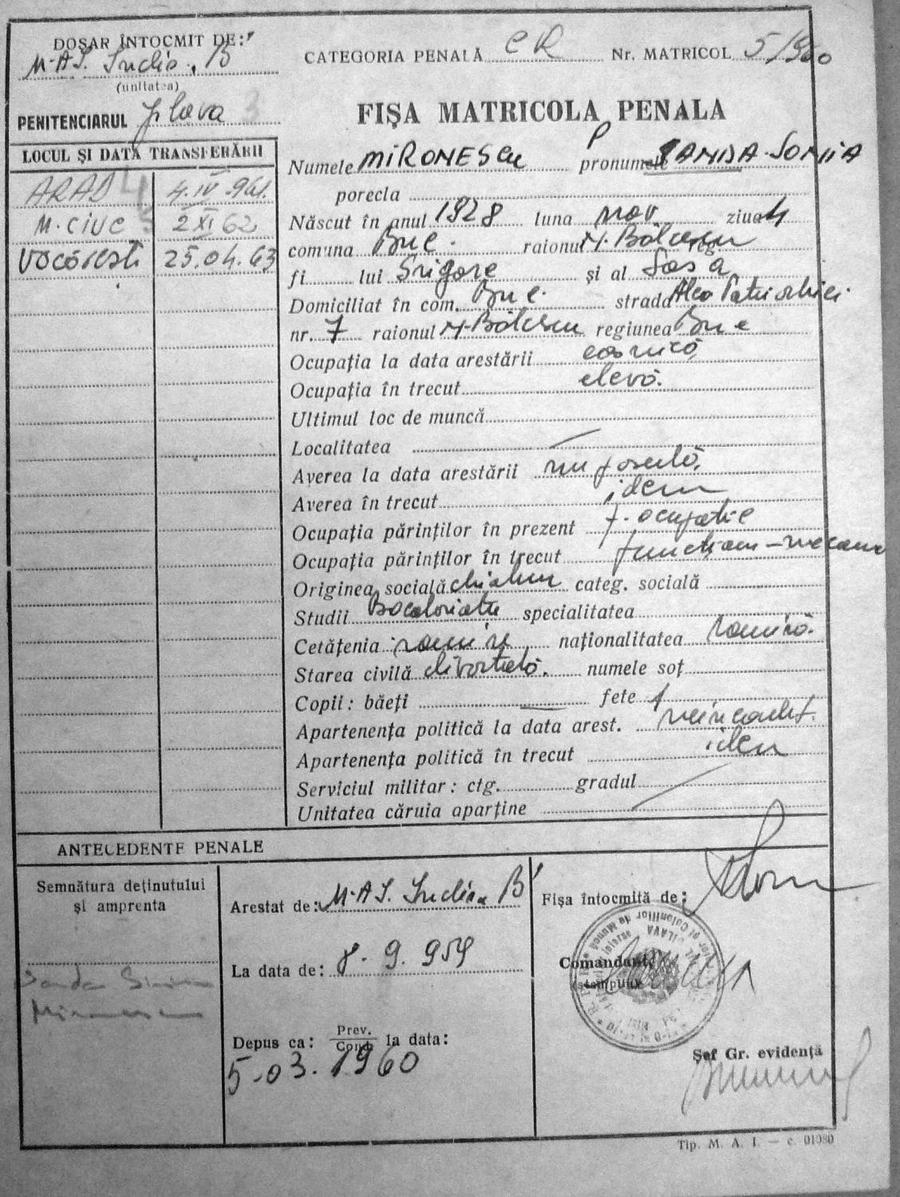 DOSAR ÎNTOCMIT DE:
M.A.I. B
(unitatea)
PENITENCIARUL Jilava 3
CATEGORIA PENALĂ CR Nr. MATRICOL 5/960
FIȘA MATRICOLA PENALA
LOCUL ȘI DATA TRANSFERĂRII
ARAD 4.IV.961.
M. CIUC 2 XI 62
VĂCĂREȘTI 25.04.63
Numele MIRONESCU pronumele SANDA-SONIA
porecla
Născut în anul 1928 luna nov ziua 4
comuna Buc. raionul N. Bălcescu reg
fi lui Grigore și al
Domiciliat în com. Buc. strada Alea Patriarhiei
nr. 7 raionul N. Bălcescu regiunea Buc
Ocupația la data arestării casnică
Ocupația în trecut elevă.
Ultimul loc de muncă
Localitatea
Averea la data arestării nu posedă,
Averea în trecut idem
Ocupația părinților în prezent f. ocupatie
Ocupația părinților în trecut
Originea socială categ. socială
Studii Bacaloriatu specialitatea
Cetățenia naționalitatea romină.
Starea civilă divorțată. numele soț
Copii: băeți — fete 1
Apartenența politică la data arest.
Apartenența politică în trecut idem
Serviciul militar: ctg. gradul
Unitatea căruia aparține
ANTECEDENTE PENALE
Semnătura deținutului
și amprenta
Mironescu
Arestat de: M.A.I. B
La data de: 8.9.959
Depus ca: Prev. Cond. la data:
5.03.1960
Fișa întocmită de:
Comandant,
Șef Gr. evidență
Tip. M. A. I. — c. 01080